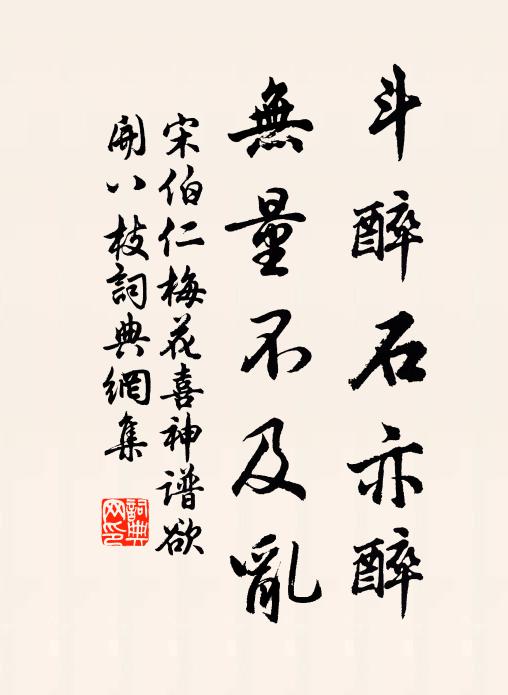 斗醉石亦醉
無量不及亂
宋伯仁梅花喜神谱欲
開八枝詞典網集
詞典
网印